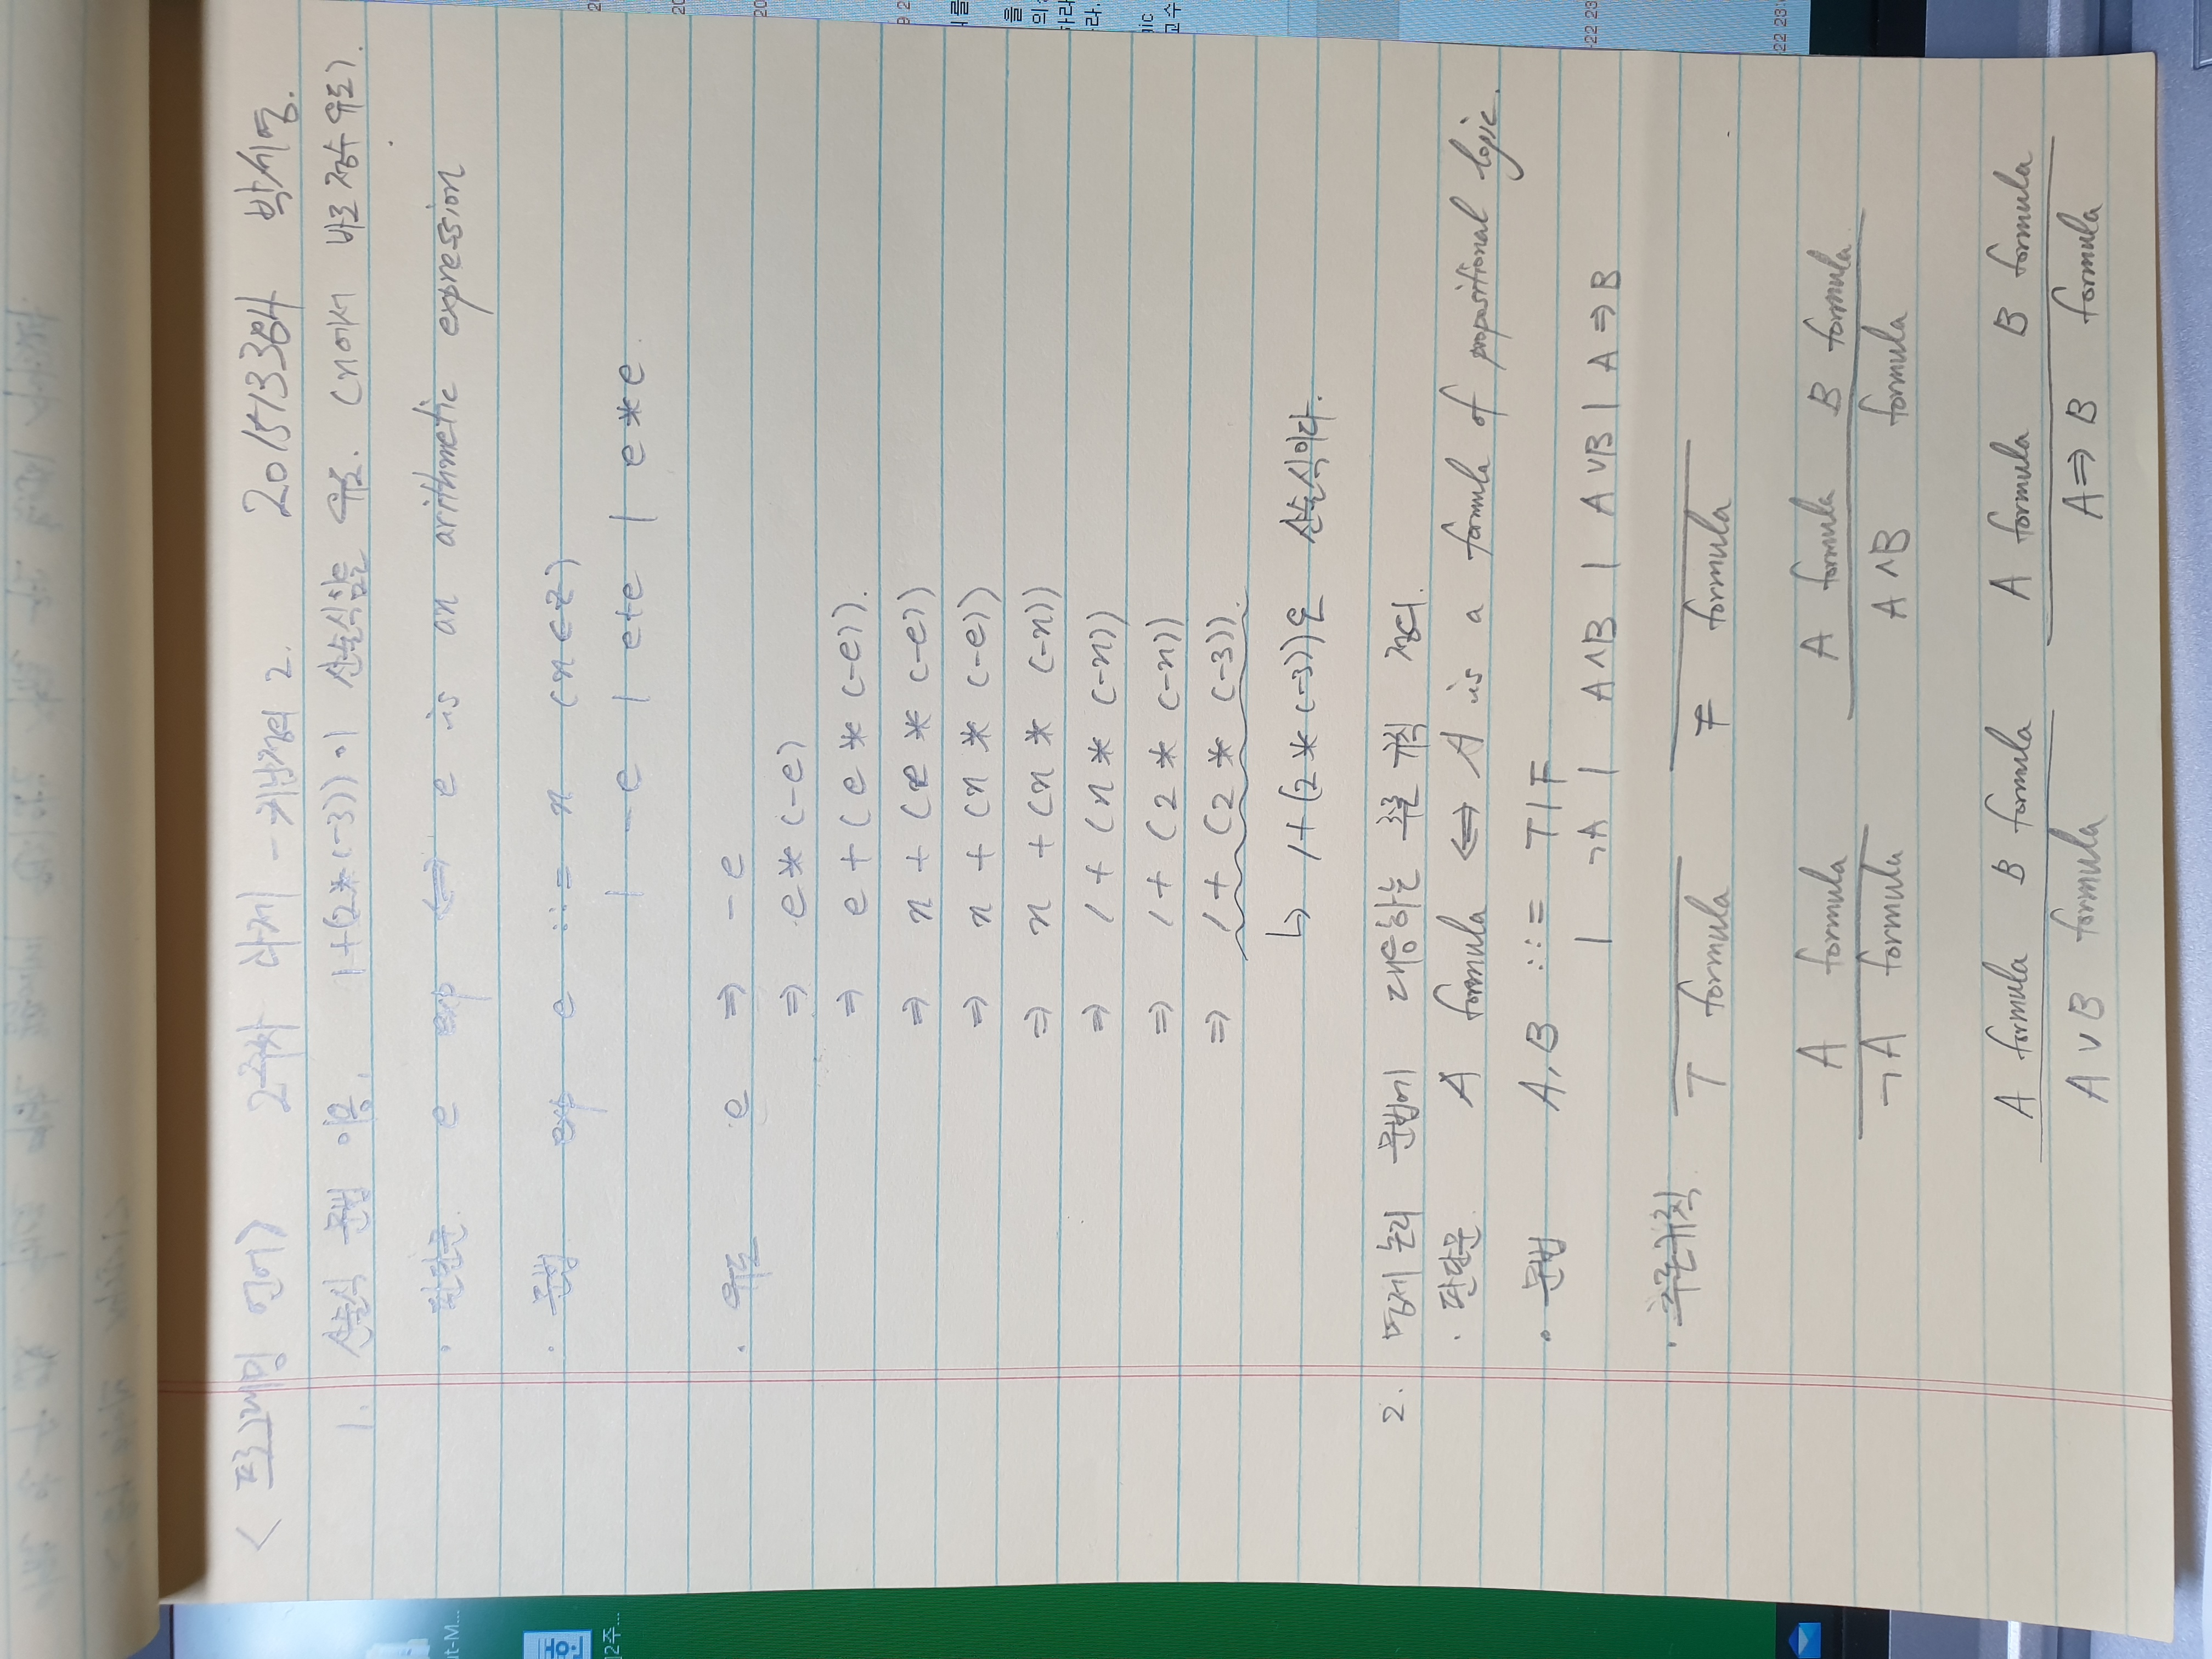 <프로그래밍 언어> 2주차 과제 - 귀납정의 2. 201513384 박세영.
1. 산술식 문법 이용, 1+(2*(-3))이 산술식임을 유도. (n에서 바로 정수 유도).
· 판단문. e exp ⇔ e is an arithmetic expression
· 문법 exp e ::= n (n∈Z)
| -e | e+e | e*e.
· 유도 e ⇒ -e
⇒ e*(-e)
⇒ e+(e*(-e)).
⇒ n+(e*(-e))
⇒ n+(n*(-e))
⇒ n+(n*(-n))
⇒ 1+(n*(-n))
⇒ 1+(2*(-n))
⇒ 1+(2*(-3)).
↳ 1+(2*(-3))은 산술식이다.
2. 명제 논리 문법에 대응하는 추론 규칙 정의.
· 판단문. A formula ⇔ A is a formula of propositional logic.
· 문법 A, B ::= T | F
| ¬A | A∧B | A∨B | A ⇒ B
· 추론규칙
T formula F formula
A formula A formula B formula
¬A formula A∧B formula
A formula B formula A formula B formula
A∨B formula A⇒B formula
ut-M...
]2주...